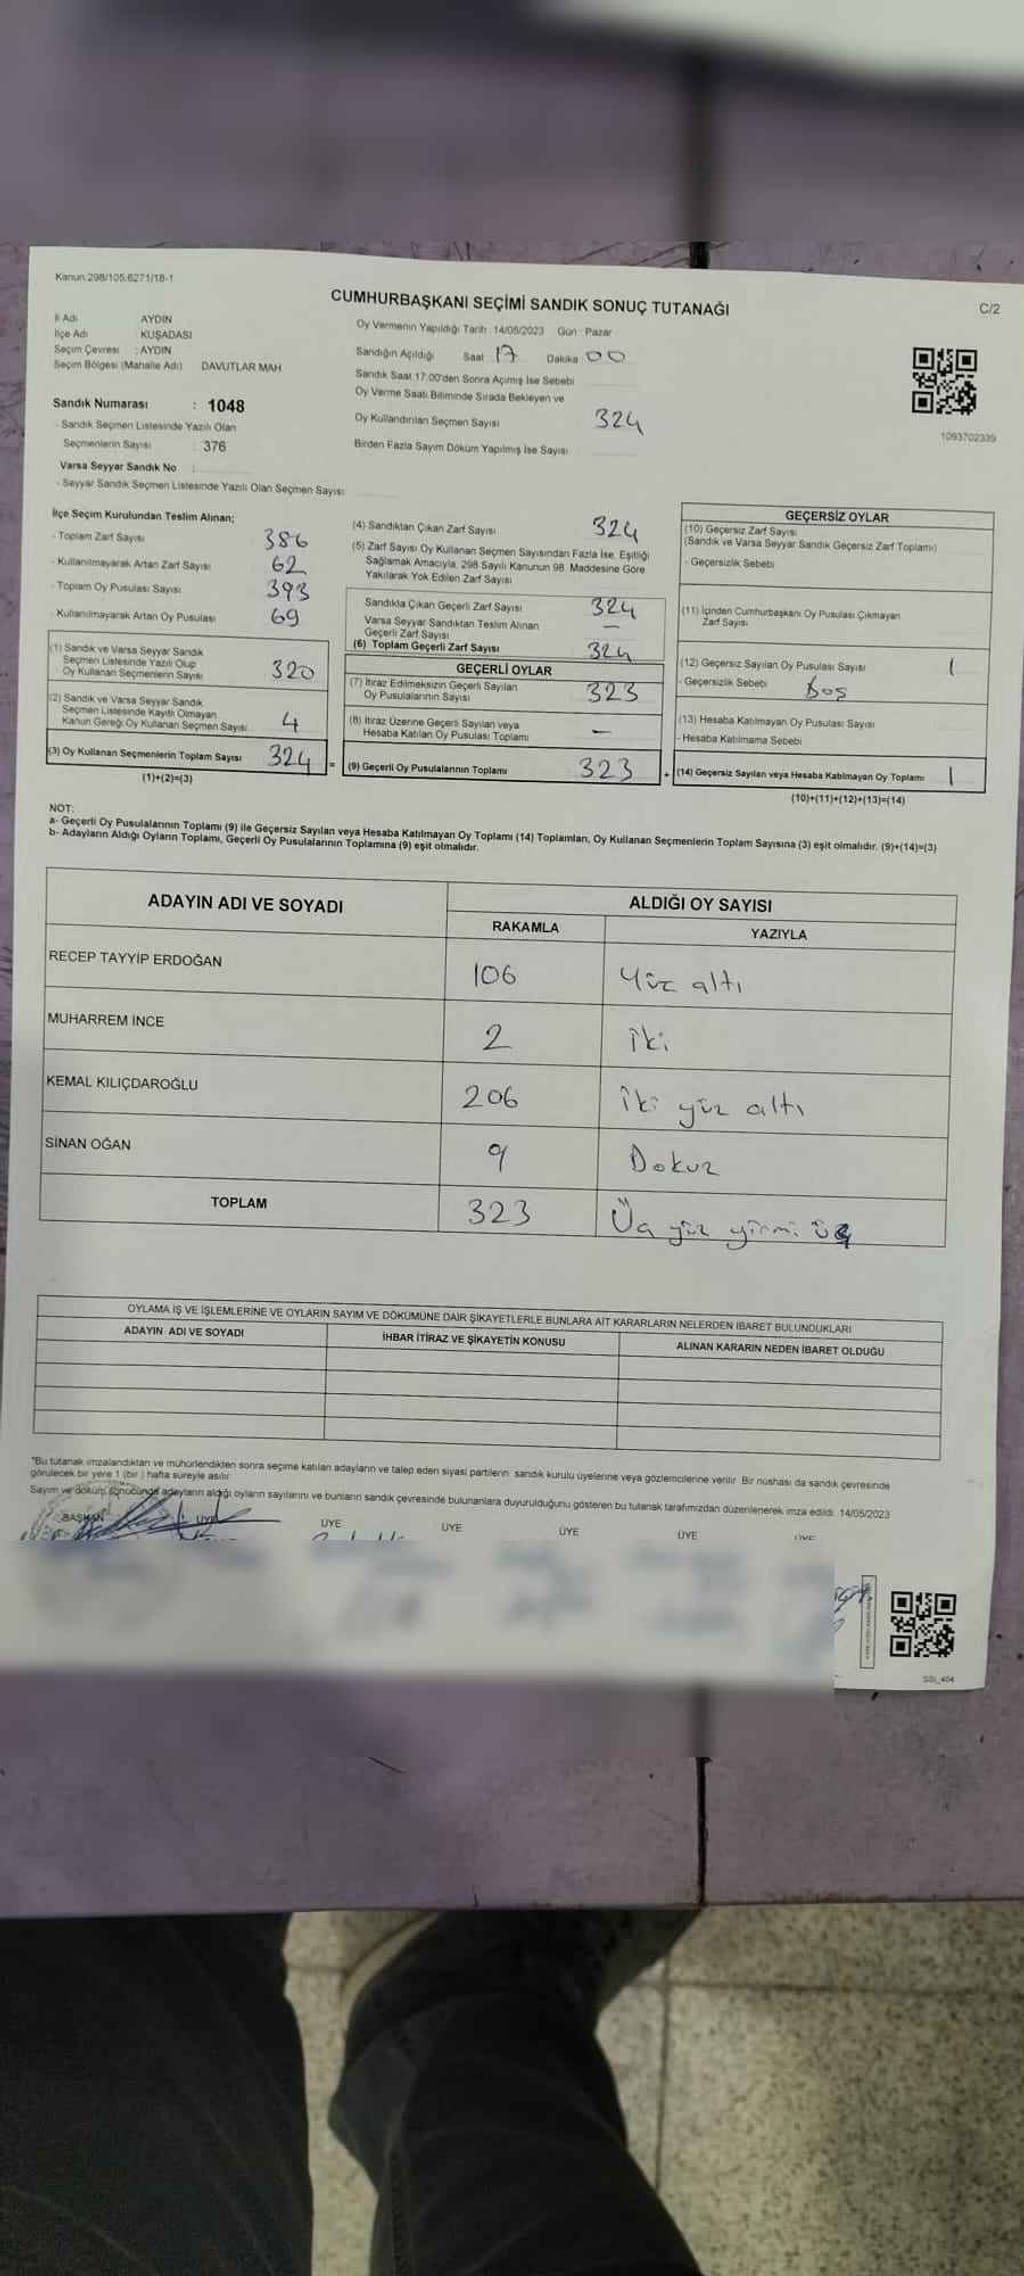 Kanun.298/105.6271/18-1
CUMHURBAŞKANI SEÇİMİ SANDIK SONUÇ TUTANAĞI
C/2
İl Adı AYDIN
İlçe Adı KUŞADASI
Seçim Çevresi : AYDIN
Seçim Bölgesi (Mahalle Adı) DAVUTLAR MAH
Sandık Numarası : 1048
- Sandık Seçmen Listesinde Yazılı Olan
Seçmenlerin Sayısı 376
Varsa Seyyar Sandık No :
- Seyyar Sandık Seçmen Listesinde Yazılı Olan Seçmen Sayısı
Oy Vermenin Yapıldığı Tarih : 14/05/2023 Gün : Pazar
Sandığın Açıldığı Saat 17 Dakika 00
Sandık Saat 17:00'den Sonra Açımış İse Sebebi
Oy Verme Saati Bitiminde Sırada Bekleyen ve
Oy Kullandırılan Seçmen Sayısı 324
Birden Fazla Sayım Döküm Yapılmış İse Sayısı
1093702339
İlçe Seçim Kurulundan Teslim Alınan;
- Toplam Zarf Sayısı 386
- Kullanılmayarak Artan Zarf Sayısı 62
- Toplam Oy Pusulası Sayısı 393
- Kullanılmayarak Artan Oy Pusulası 69
(1) Sandık ve Varsa Seyyar Sandık
Seçmen Listesinde Yazılı Olup
Oy Kullanan Seçmenlerin Sayısı 320
(2) Sandık ve Varsa Seyyar Sandık
Seçmen Listesinde Kayıtlı Olmayan
Kanun Gereği Oy Kullanan Seçmen Sayısı 4
(3) Oy Kullanan Seçmenlerin Toplam Sayısı 324 =
(1)+(2)=(3)
(4) Sandıktan Çıkan Zarf Sayısı 324
(5) Zarf Sayısı Oy Kullanan Seçmen Sayısından Fazla İse, Eşitliği
Sağlamak Amacıyla, 298 Sayılı Kanunun 98. Maddesine Göre
Yakılarak Yok Edilen Zarf Sayısı
Sandıkta Çıkan Geçerli Zarf Sayısı 324
Varsa Seyyar Sandıktan Teslim Alınan
Geçerli Zarf Sayısı —
(6) Toplam Geçerli Zarf Sayısı 324
GEÇERLİ OYLAR
(7) İtiraz Edilmeksizin Geçerli Sayılan
Oy Pusulalarının Sayısı 323
(8) İtiraz Üzerine Geçerli Sayılan veya
Hesaba Katılan Oy Pusulası Toplamı —
(9) Geçerli Oy Pusulalarının Toplamı 323 +
GEÇERSİZ OYLAR
(10) Geçersiz Zarf Sayısı
(Sandık ve Varsa Seyyar Sandık Geçersiz Zarf Toplamı)
- Geçersizlik Sebebi
(11) İçinden Cumhurbaşkanı Oy Pusulası Çıkmayan
Zarf Sayısı
(12) Geçersiz Sayılan Oy Pusulası Sayısı 1
- Geçersizlik Sebebi Boş
(13) Hesaba Katılmayan Oy Pusulası Sayısı
- Hesaba Katılmama Sebebi
(14) Geçersiz Sayılan veya Hesaba Katılmayan Oy Toplamı 1
(10)+(11)+(12)+(13)=(14)
NOT:
a- Geçerli Oy Pusulalarının Toplamı (9) ile Geçersiz Sayılan veya Hesaba Katılmayan Oy Toplamı (14) Toplamları, Oy Kullanan Seçmenlerin Toplam Sayısına (3) eşit olmalıdır. (9)+(14)=(3)
b- Adayların Aldığı Oyların Toplamı, Geçerli Oy Pusulalarının Toplamına (9) eşit olmalıdır.
ADAYIN ADI VE SOYADI ALDIĞI OY SAYISI
RAKAMLA YAZIYLA
RECEP TAYYİP ERDOĞAN 106 Yüz altı
MUHARREM İNCE 2 İki
KEMAL KILIÇDAROĞLU 206 İki yüz altı
SİNAN OĞAN 9 Dokuz
TOPLAM 323 Üç yüz yirmi üç
OYLAMA İŞ VE İŞLEMLERİNE VE OYLARIN SAYIM VE DÖKÜMÜNE DAİR ŞİKAYETLERLE BUNLARA AİT KARARLARIN NELERDEN İBARET BULUNDUKLARI
ADAYIN ADI VE SOYADI İHBAR İTİRAZ VE ŞİKAYETİN KONUSU ALINAN KARARIN NEDEN İBARET OLDUĞU
"Bu tutanak imzalandıktan ve mühürlendikten sonra seçime katılan adayların ve talep eden siyasi partilerin sandık kurulu üyelerine veya gözlemcilerine verilir. Bir nüshası da sandık çevresinde
görülecek bir yere 1 (bir ) hafta süreyle asılır.
Sayım ve döküm sonucunda adayların aldığı oyların sayılarını ve bunların sandık çevresinde bulunanlara duyurulduğunu gösteren bu tutanak tarafımızdan düzenlenerek imza edildi. 14/05/2023
BAŞKAN ÜYE ÜYE ÜYE ÜYE ÜYE ÜYE